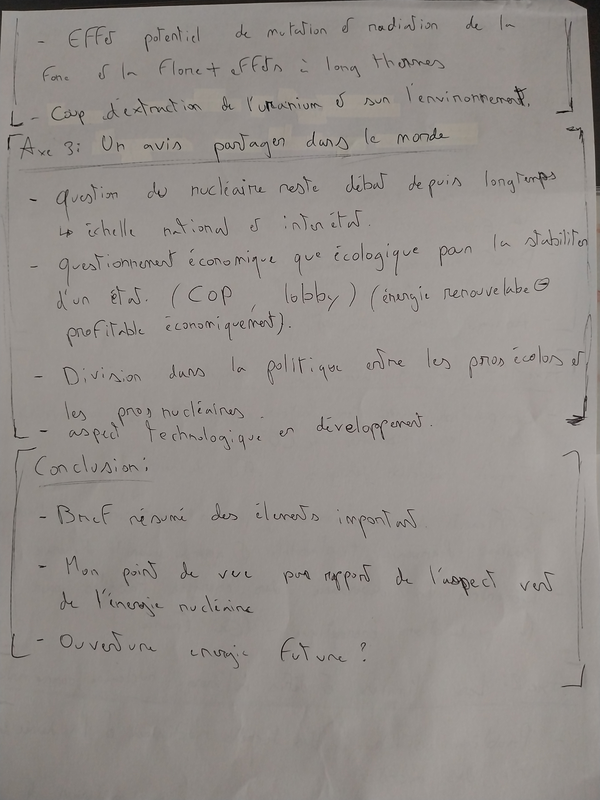 - Effet potentiel de mutation et radiation de la
fone et la flore + effets à long thermes
- Coup d'extraction de l'uranium et sur l'environnement.
Axe 3: Un avis partager dans le monde
- question du nucléaire reste débat depuis longtemps
↳ échelle national et interétat.
- questionnement économique que écologique pour la stabiliter
d'un état. (COP, lobby) (énergie renouvelabe ⊖
profitable économiquement).
- Division dans la politique entre les pros écolos et
les pros nucléaires.
- aspect technologique en développement.
Conclusion:
- Bref résumé des élements important
- Mon point de vue par rapport de l'aspect vert
de l'énergie nucléaire
- Ouverture energie future ?